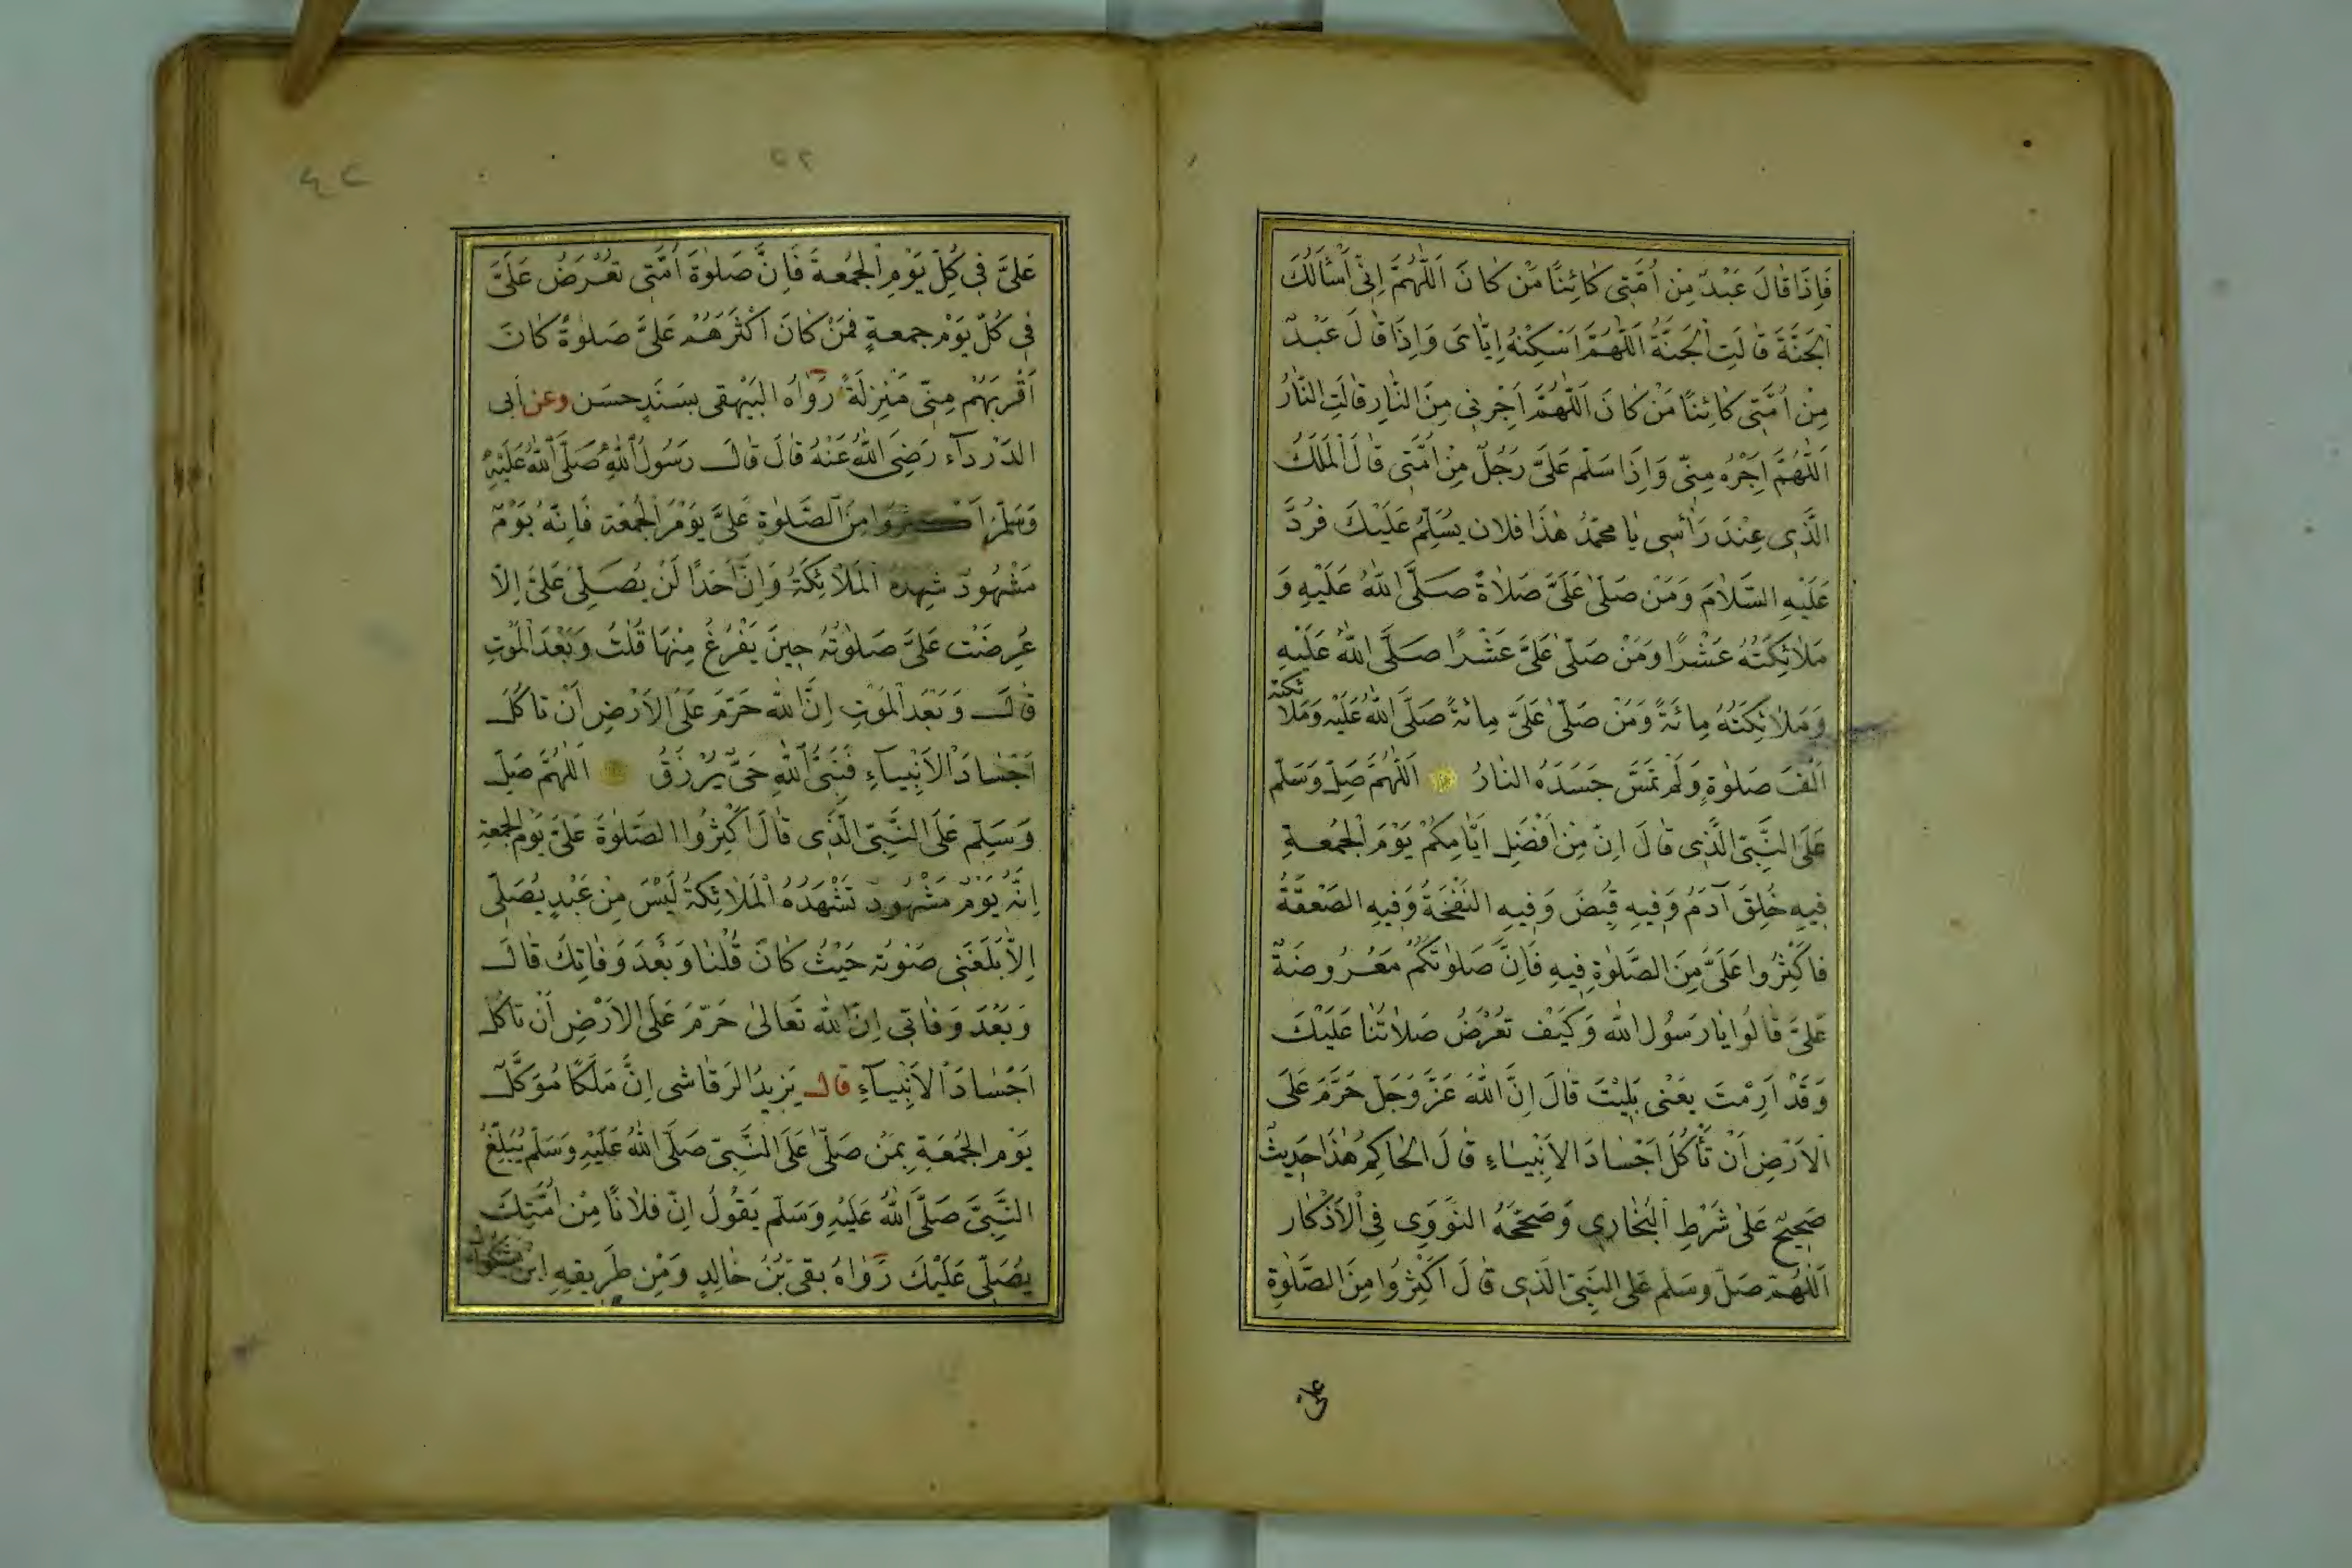 فَاِذَا قَالَ عَبْدٌ مِنْ اُمَّتِى كَائِنًا مَنْ كَانَ اَللّٰهُمَّ اِنِّى اَسْاَلُكَ
الْجَنَّةَ قَالَتِ الْجَنَّةُ اَللّٰهُمَّ اَسْكِنْهُ اِيَّاىَ وَاِذَا قَالَ عَبْدٌ
مِنْ اُمَّتِى كَائِنًا مَنْ كَانَ اَللّٰهُمَّ اَجِرْنِى مِنَ النَّارِ قَالَتِ النَّارُ
اَللّٰهُمَّ اَجِرْهُ مِنِّى وَاِذَا سَلَّمَ عَلَىَّ رَجُلٌ مِنْ اُمَّتِى قَالَ الْمَلَكُ
الَّذِى عِنْدَ رَأْسِى يَا مُحَمَّدُ هٰذَا فلان يُسَلِّمُ عَلَيْكَ فَرُدَّ
عَلَيْهِ السَّلَامَ وَمَنْ صَلَّى عَلَىَّ صَلَاةً صَلَّى اللّٰهُ عَلَيْهِ وَ
مَلٰائِكَتُهُ عَشْرًا وَمَنْ صَلّٰى عَلَىَّ عَشْرًا صَلَّى اللّٰهُ عَلَيْهِ
وَمَلٰائِكَتُهُ مِائَةً وَمَنْ صَلّٰى عَلَىَّ مِائَةً صَلَّى اللّٰهُ عَلَيْهِ وَمَلَائكته
اَلْفَ صَلٰوةٍ وَلَمْ تَمَسَّ جَسَدَهُ النَارُ اَللّٰهُمَّ صَلِّ وَسَلِّمْ
عَلَى النَّبِىِّ الَّذِى قَالَ اِنَّ مِنْ اَفْضَلِ اَيَّامِكُمْ يَوْمَ الْجُمُعَةِ
فِيهِ خُلِقَ آدَمُ وَفِيهِ قُبِضَ وَفِيهِ النَفْخَةُ وَفِيهِ الصَعْقَةُ
فَاَكْثِرُوا عَلَىَّ مِنَ الصَّلٰوةِ فِيهِ فَاِنَّ صَلٰوتَكُمْ مَعْرُوضَةٌ
عَلَىَّ قَالُوا يَا رَسُولَ اللّٰه وَكَيْفَ تُعْرَضُ صَلَاتُنَا عَلَيْكَ
وَقَدْ اَرِمْتَ يَعْنِى بَلِيْتَ قَالَ اِنَّ اللّٰهَ عَزَّ وَجَلَّ حَرَّمَ عَلَى
الْاَرْضِ اَنْ تَأْكُلَ اَجْسَادَ الْاَنْبِيَاءِ قَالَ الْحَاكِمُ هٰذَا حَدِيثٌ
صَحِيحٌ عَلٰى شَرْطِ الْبُخَارِى وَصَحَّحَهُ النَّوَوِى فِى الْاَذْكَار
اَللّٰهُمَّ صَلِّ وسَلِّمْ عَلَى النَّبِىِّ الَّذِى قَالَ اَكْثِرُوا مِنَ الصَّلٰوةِ
علىّ
عَلَىَّ فِى كُلِّ يَوْمِ الْجُمُعَةِ فَاِنَّ صَلٰوةَ اُمَّتِى تُعْرَضُ عَلَىَّ
فِى كُلِّ يَوْمِ جمعةٍ فَمَنْ كَانَ اَكْثَرَهُمْ عَلَىَّ صَلٰوةً كَانَ
اَقْرَبَهُمْ مِنِّى مَنْزِلَةً رَوَاهُ البَيْهَقِى بِسَنَدٍ حسَن وعن اَبِى
الدَّرْدَآء رَضِىَ اللّٰهُ عَنْهُ قَالَ قَالَ رَسُولُ اللّٰهِ صَلَّى اللّٰهُ عَلَيْهِ
وَسَلَّمَ اَكثروا مِنَ الصَّلٰوةِ عَلَىَّ يَوْمَ الْجُمُعَة فَاِنَّهُ يَوْمٌ
مَشْهُودٌ شهده الْمَلَائِكَةُ وَاِنَّ اَحَدًا لَنْ يُصَلِّىَ عَلَىَّ اِلَّا
عُرِضَتْ عَلَىَّ صَلٰوتُهُ حِينَ يَفْرُغُ مِنْهَا قُلْتُ وَبَعْدَ الْمَوْتِ
قَالَ وَبَعْدَ الْمَوْتِ اِنَّ اللّٰه حَرَّمَ عَلَى الْاَرْضِ اَنْ تَاكُلَ
اَجْسَادَ الْاَنْبِيَآءِ فَنَبِىُّ اللّٰهِ حَىٌّ يُرْزَقُ اَللّٰهُمَّ صَلِّ
وَسَلِّم عَلَى النَّبِىِّ الَّذِى قَالَ اَكْثِرُوا الصَلٰوةَ عَلَىَّ يَوْمَ الْجُمُعَةِ
اِنَّهُ يَوْمٌ مَشْهُودٌ تَشْهَدُهُ الْمَلَائِكَةُ لَيْسَ مِنْ عَبْدٍ يُصَلِّى
اِلَّا بَلَغَنِى صَوْتُهُ حَيْثُ كَانَ قُلْنَا وَبَعْدَ وَفَاتِكَ قَالَ
وَبَعْدَ وَفَاتِى اِنَّ اللّٰه تَعَالٰى حَرَّمَ عَلَى الْاَرْضِ اَنْ تَاكُلَ
اَجْسَادَ الْاَنْبِيَآءِ قال يَزِيدُ الرَقَاشِى اِنَّ مَلَكًا مُوَكَّلٌ
يَوْم الْجُمُعَةِ بِمَنْ صَلّٰى عَلَى النَّبِىِّ صَلَّى اللّٰهُ عَلَيْهِ وَسَلَّم يُبَلِّغُ
النَّبِىَّ صَلَّى اللّٰهُ عَلَيْهِ وَسَلَّم يَقُولُ اِنَّ فُلَانًا مِنْ اُمَّتِكَ
يُصَلِّى عَلَيْكَ رَوَاهُ بقىّ بْنُ خَالِدٍ وَمِنْ طَرِيقِهِ ابْن بشكوال